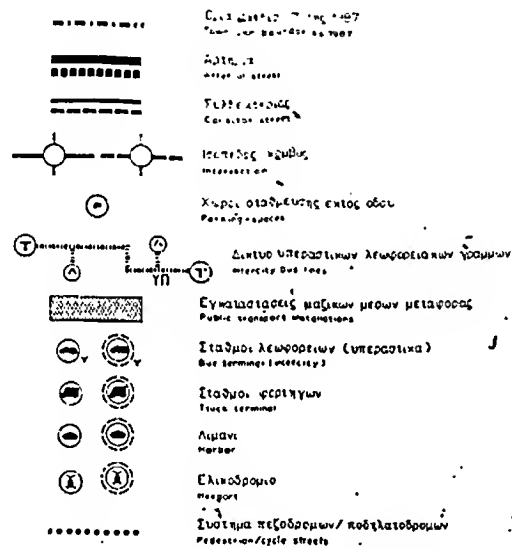 1987
Αρτηρια
Arterial street
Συλλεκτηριος
Collector street
Ισοπεδος κομβος
Intersection
Χωροι σταθμευσης εκτος οδου
Parking spaces
T
Δικτυο υπεραστικων λεωφορειακων γραμμων
Intercity bus lines
ΥΠ T
Εγκαταστασεις μαζικων μεσων μεταφορας
Public transport installations
Σταθμοι λεωφορειων (υπεραστικα)
Bus terminal (intercity)
Σταθμοι φορτηγων
Truck terminal
Λιμανι
Harbor
Ελικοδρομιο
Heliport
Συστημα πεζοδρομων/ποδηλατοδρομων
Pedestrian/cycle streets